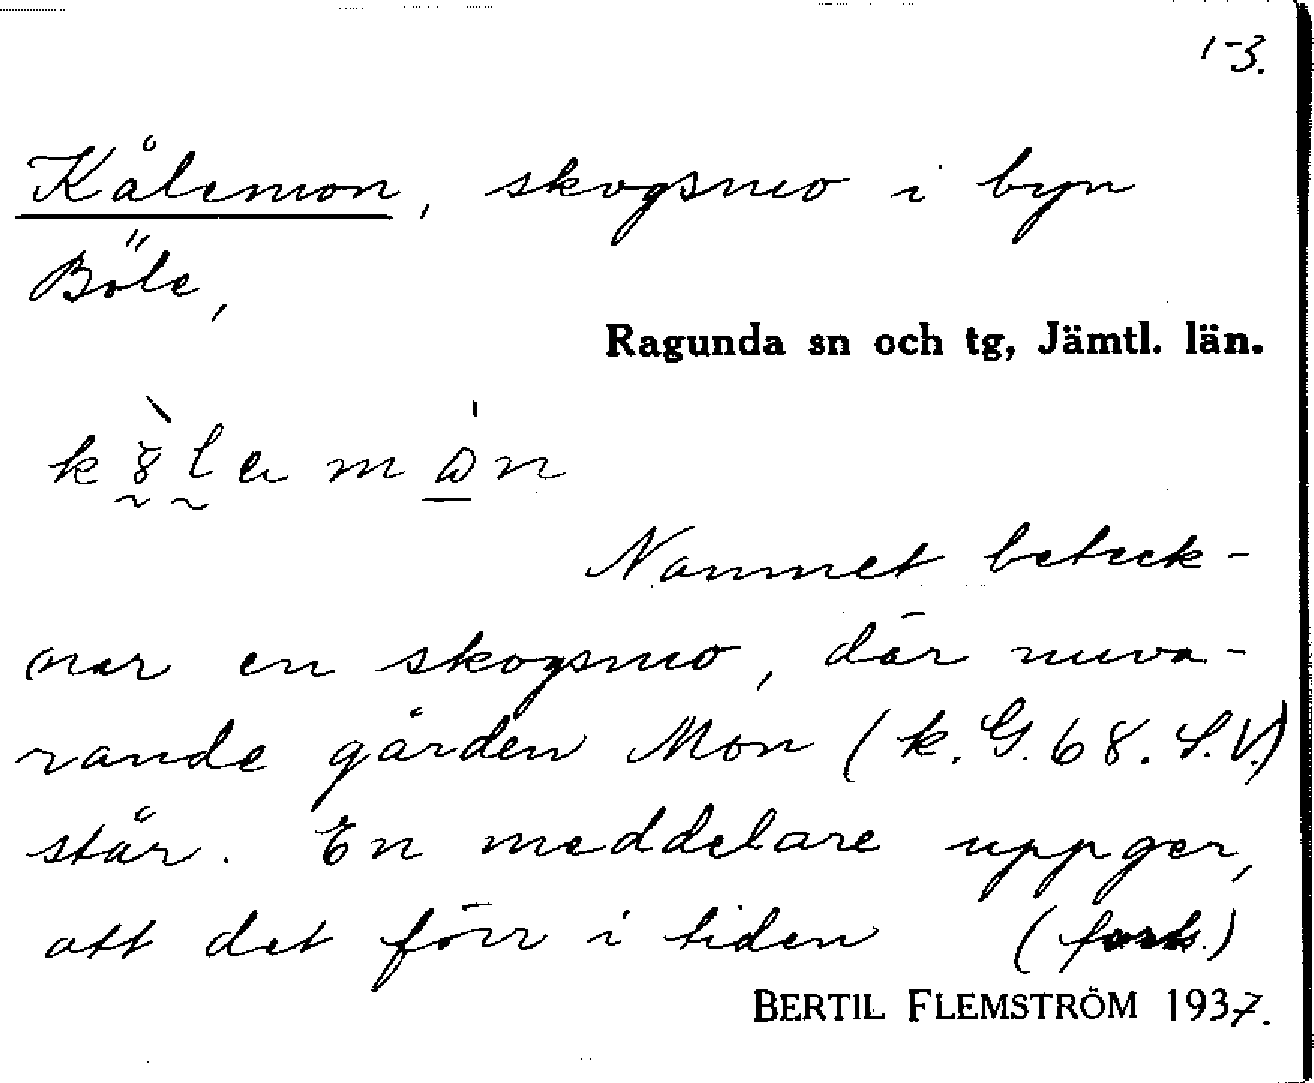 1-3.
Kålemon, skogsmo i byn
Böle,
Ragunda sn och tg, Jämtl. län.
Namnet beteck-
nar en skogsmo, där nuva-
rande gården Mon (k. G. 68. S.V.)
står. En meddelare uppger,
att det förr i tiden (forts.)
BERTIL FLEMSTRÖM 1937.